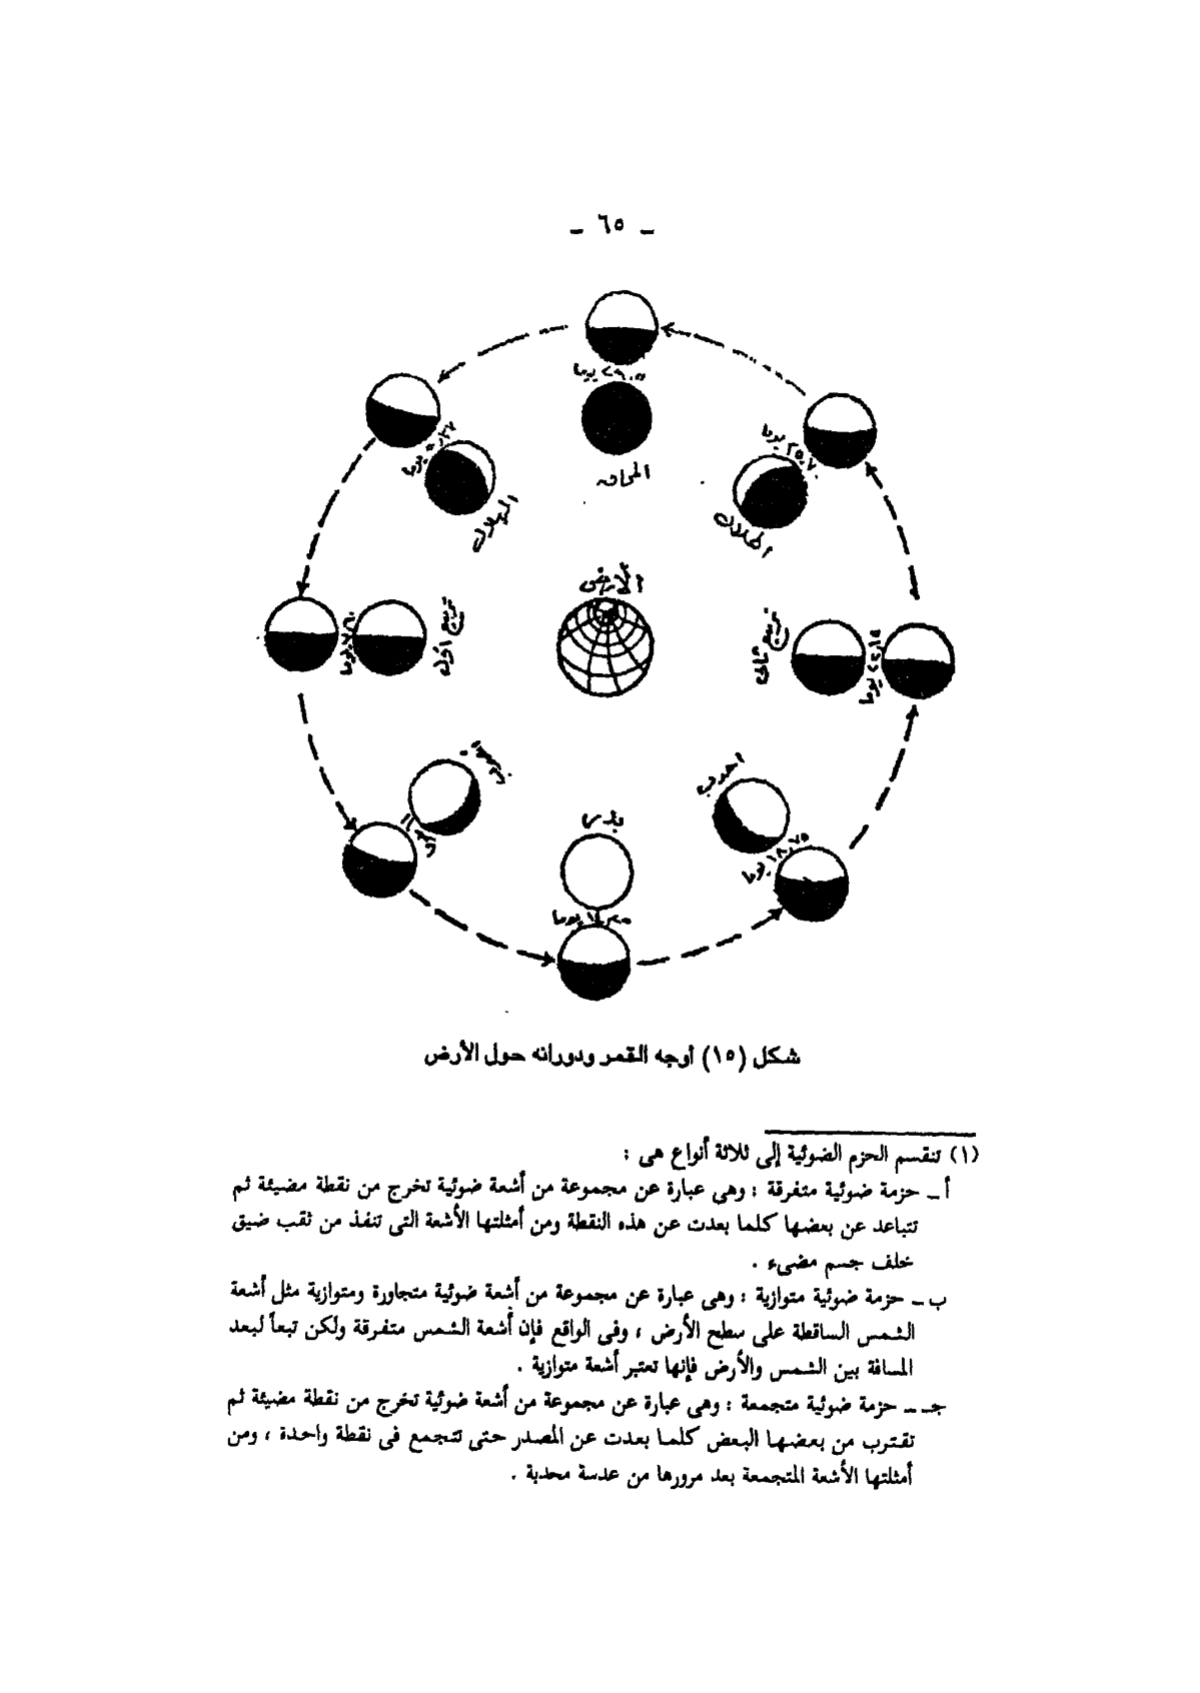 ـ ٦٥ ـ
٢٩.٥ يوما
المحاق
يوما
الهلال
٢٥.٧٠ يوما
الهلال
الأرض
تربيع أول
يوما
تربيع ثانى
٢٢.١٥ يوما
احدب
١٨.٧٥ يوما
بدر
يوما
شكل (١٥) أوجه القمر ودورانه حول الأرض
(١) تنقسم الحزم الضوئية إلى ثلاثة أنواع هى :
أ ـ حزمة ضوئية متفرقة : وهى عبارة عن مجموعة من أشعة ضوئية تخرج من نقطة مضيئة ثم
تتباعد عن بعضها كلما بعدت عن هذه النقطة ومن أمثلتها الأشعة التى تنفذ من ثقب ضيق
خلف جسم مضىء .
ب ـ حزمة ضوئية متوازية : وهى عبارة عن مجموعة من أشعة ضوئية متجاورة ومتوازية مثل أشعة
الشمس الساقطة على سطح الأرض ، وفى الواقع فإن أشعة الشمس متفرقة ولكن تبعاً لبعد
المسافة بين الشمس والأرض فإنها تعتبر أشعة متوازية .
جـ ـ حزمة ضوئية متجمعة : وهى عبارة عن مجموعة من أشعة ضوئية تخرج من نقطة مضيئة ثم
تقترب من بعضها البعض كلما بعدت عن المصدر حتى تتجمع فى نقطة واحدة ، ومن
أمثلتها الأشعة المتجمعة بعد مرورها من عدسة محدبة .